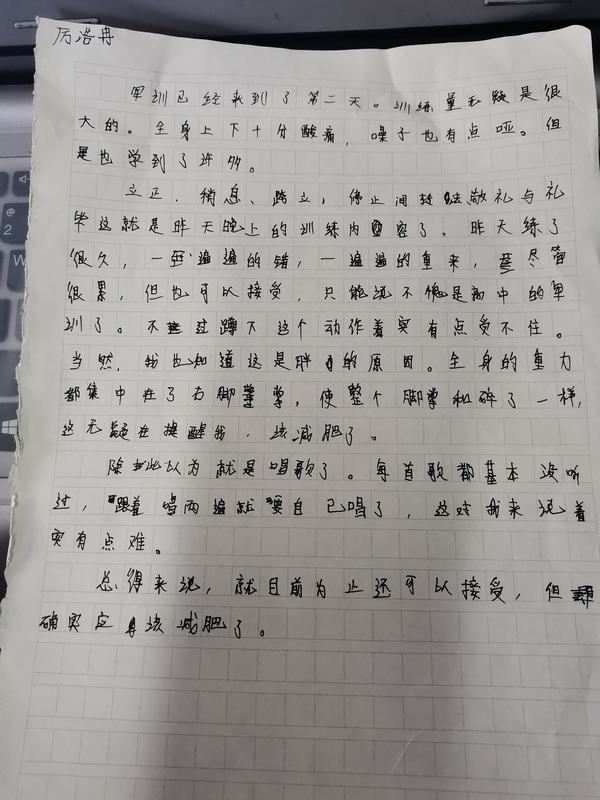 厉洛冉
军训已经来到了第二天。训练量无疑是很
大的。全身上下十分酸痛，嗓子也有点哑。但
是也学到了许多。
立正、稍息、跨立，停止间转法敬礼与礼
毕这就是昨天晚上的训练内容了。昨天练了
很久，一遍遍的错，一遍遍的重来，尽管
很累，但也可以接受，只能说不愧是高中的军
训了。不过蹲下这个动作着实有点受不住。
当然，我也知道这是胖的原因。全身的重力
都集中在了右脚掌，使整个脚掌和碎了一样，
这无疑在提醒我，该减肥了。
除此以为就是唱歌了。每首歌都基本没听
过，跟着唱两遍就要自己唱了，这对我来说着
实有点难。
总得来说，就目前为止还可以接受，但
确实应该减肥了。